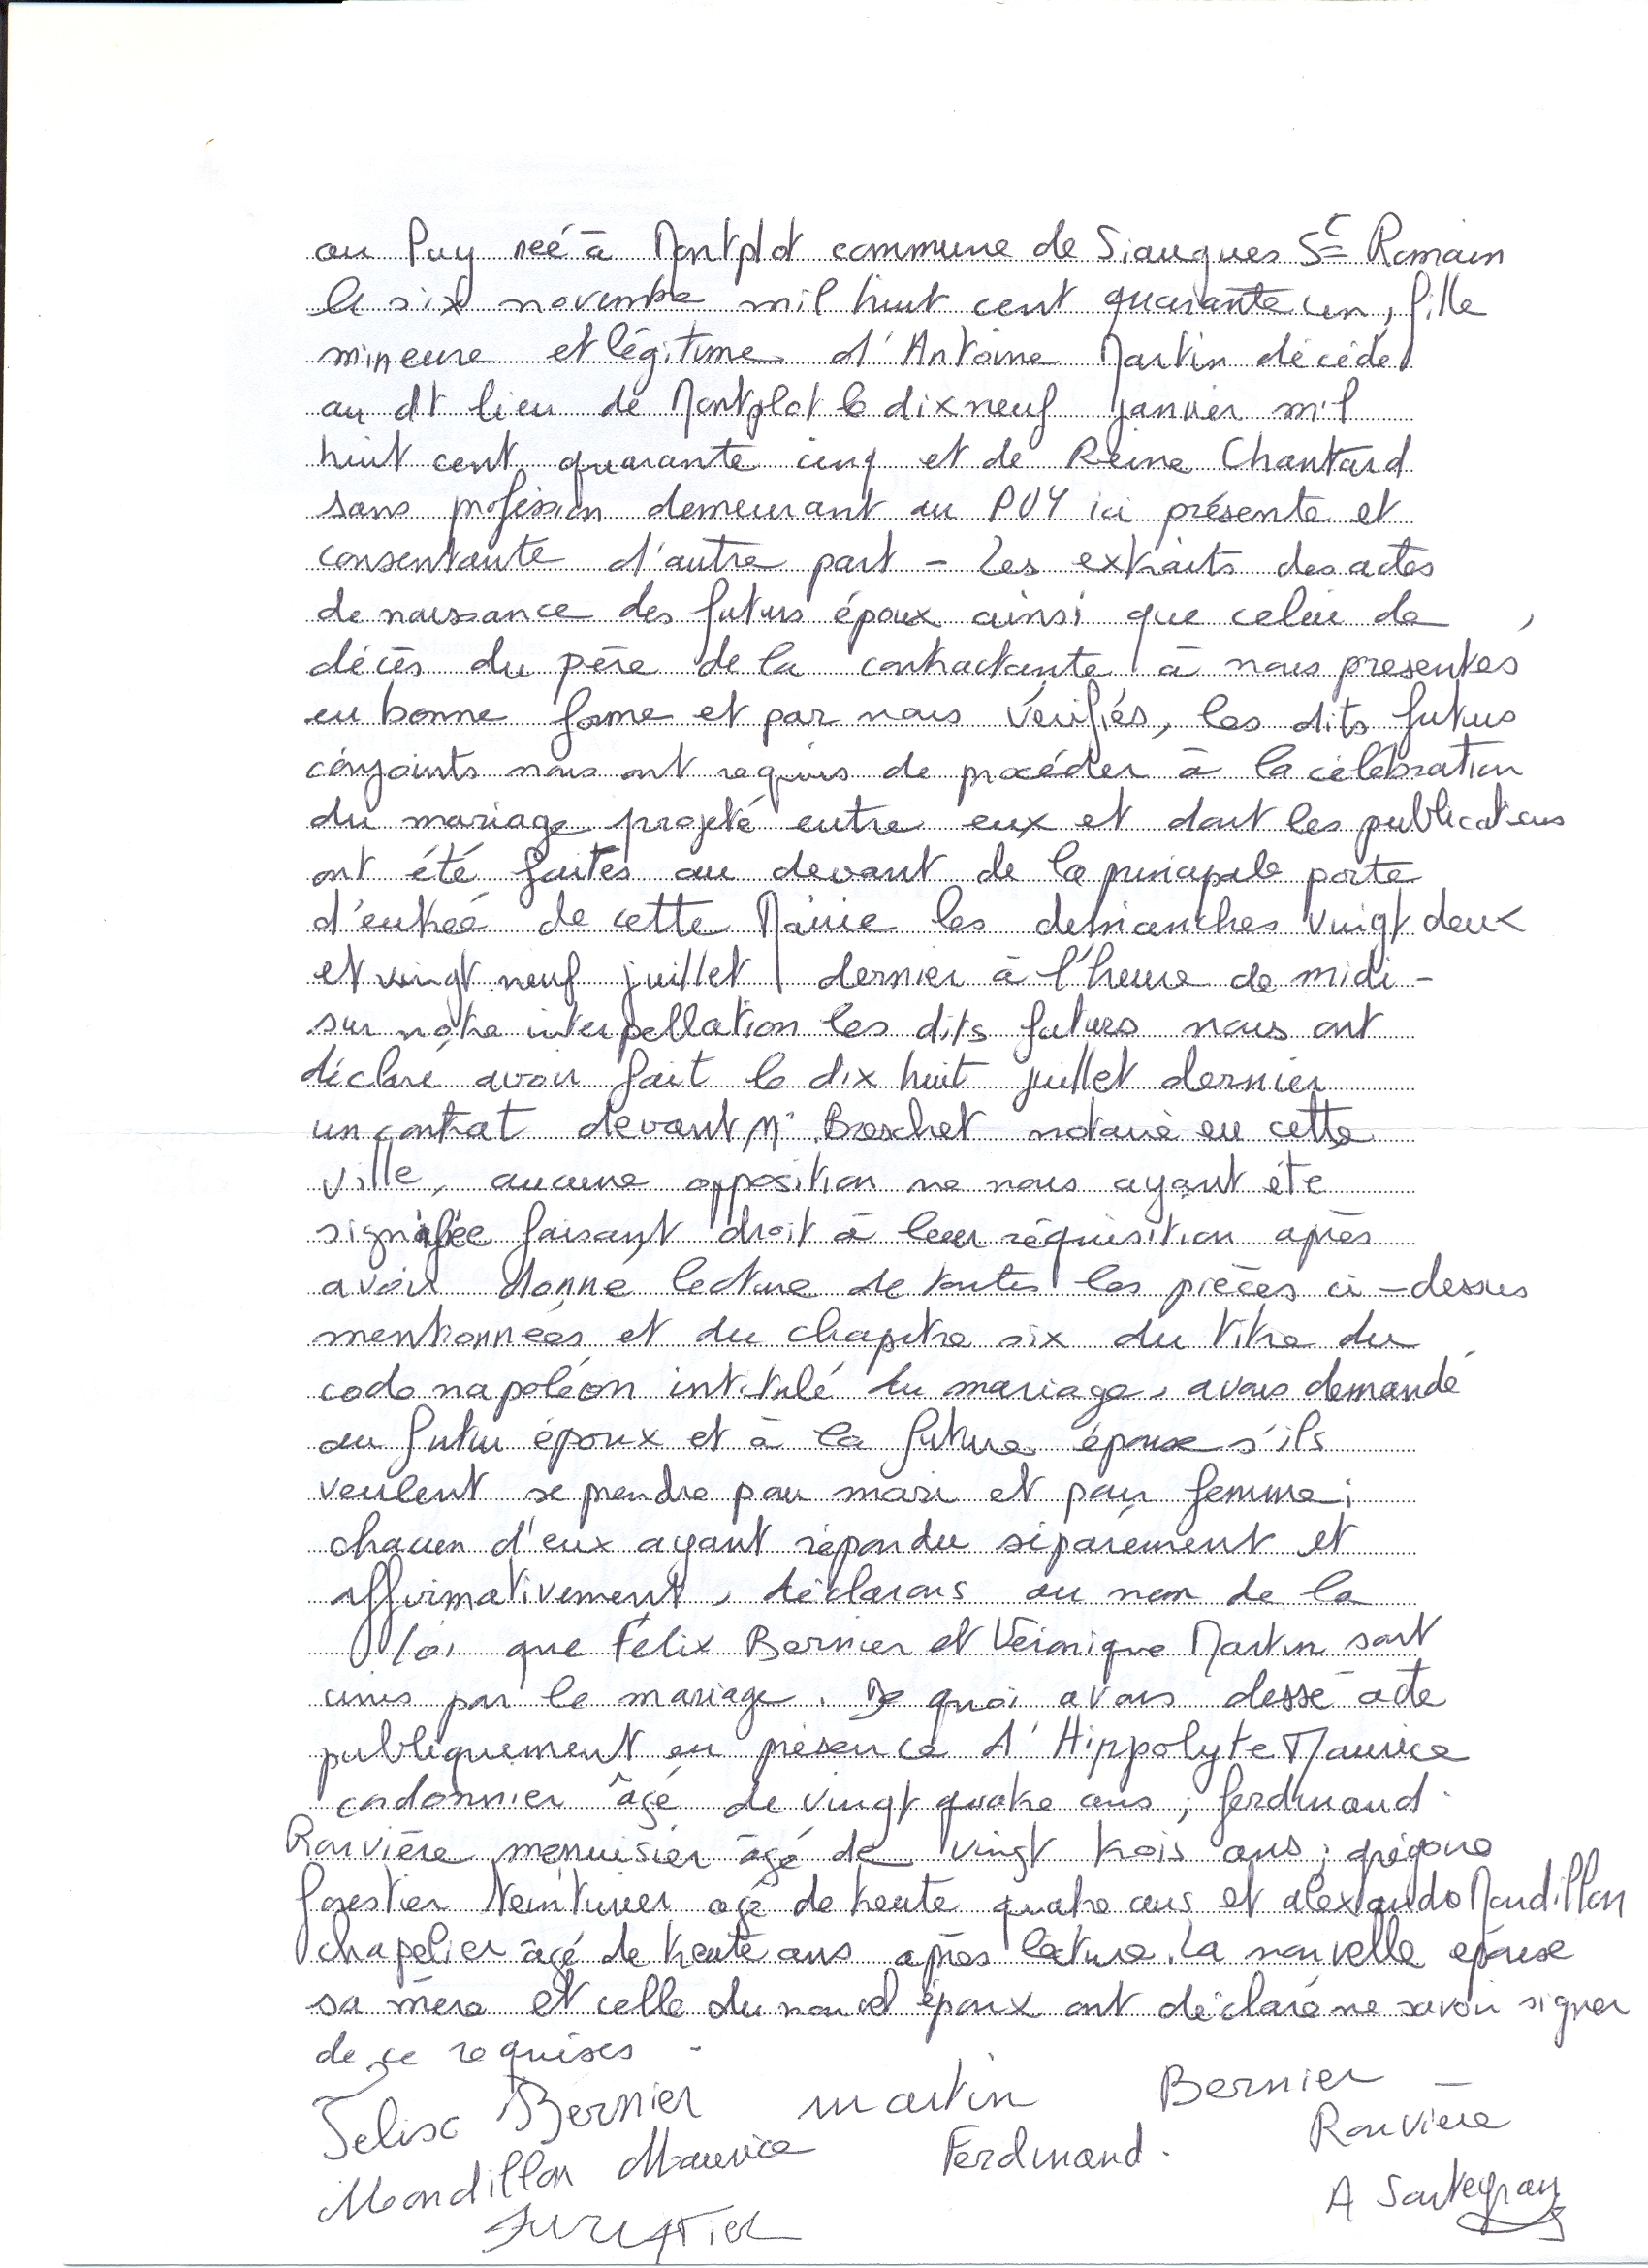 au Puy neé à Montplot commune de Siaugues St Romain
le six novembre mil huit cent quarante un, fille
mineure et légitime d'Antoine Martin décédé
au dt lieu de Montplot le dix neuf janvier mil
huit cent quarante cinq et de Reine Chantard
sans profession demeurant au PUY ici présente et
consentante d'autre part - Les extraits des actes
de naissance des futurs époux ainsi que celui de
décès du père de la contractante à nous presentés
en bonne forme et par nous vérifiés, les dits futurs
conjoints nous ont requis de procéder à la célébration
du mariage projeté entre eux et dont les publications
ont été faites au devant de la principale porte
d'entreé de cette Mairie les demanches vingt deux
et vingt neuf juillet dernier à l'heure de midi -
sur notre interpellation les dits futurs nous ont
déclaré avoir fait le dix huit juillet dernier
un contrat devant Me Breschet notaire en cette
ville, aucune opposition ne nous ayant éte
signifiée faisant droit à leur réquisition après
avoir donné lecture de toutes les pièces ci-dessus
mentionnées et du chapitre six du titre du
code napoléon intitulé du mariage, avons demandé
au futur époux et à la future épouse s'ils
veulent se prendre pour mari et pour femme;
chacun d'eux ayant répondu séparément et
affirmativement, déclarons au nom de la
loi que Félix Bernier et Véronique Martin sont
unis par le mariage. De quoi avons dessé acte
publiquement en présence d'Hippolyte Maurice
cordonnier âgé de vingt quatre ans; ferdinand
Rouvière menuisier âgé de vingt trois ans; grégoire
forestier teinturier agé de trente quatre ans et alexandre Mondillon
chapelier âgé de trente ans après lecture. La nouvelle epouse
sa mère et celle du nouvel époux ont déclaré ne savoir signer
de ce requises -
Felix Bernier martin Bernier -
Mondillon Maurice Ferdinand. Rouvière
A Sauvegrain